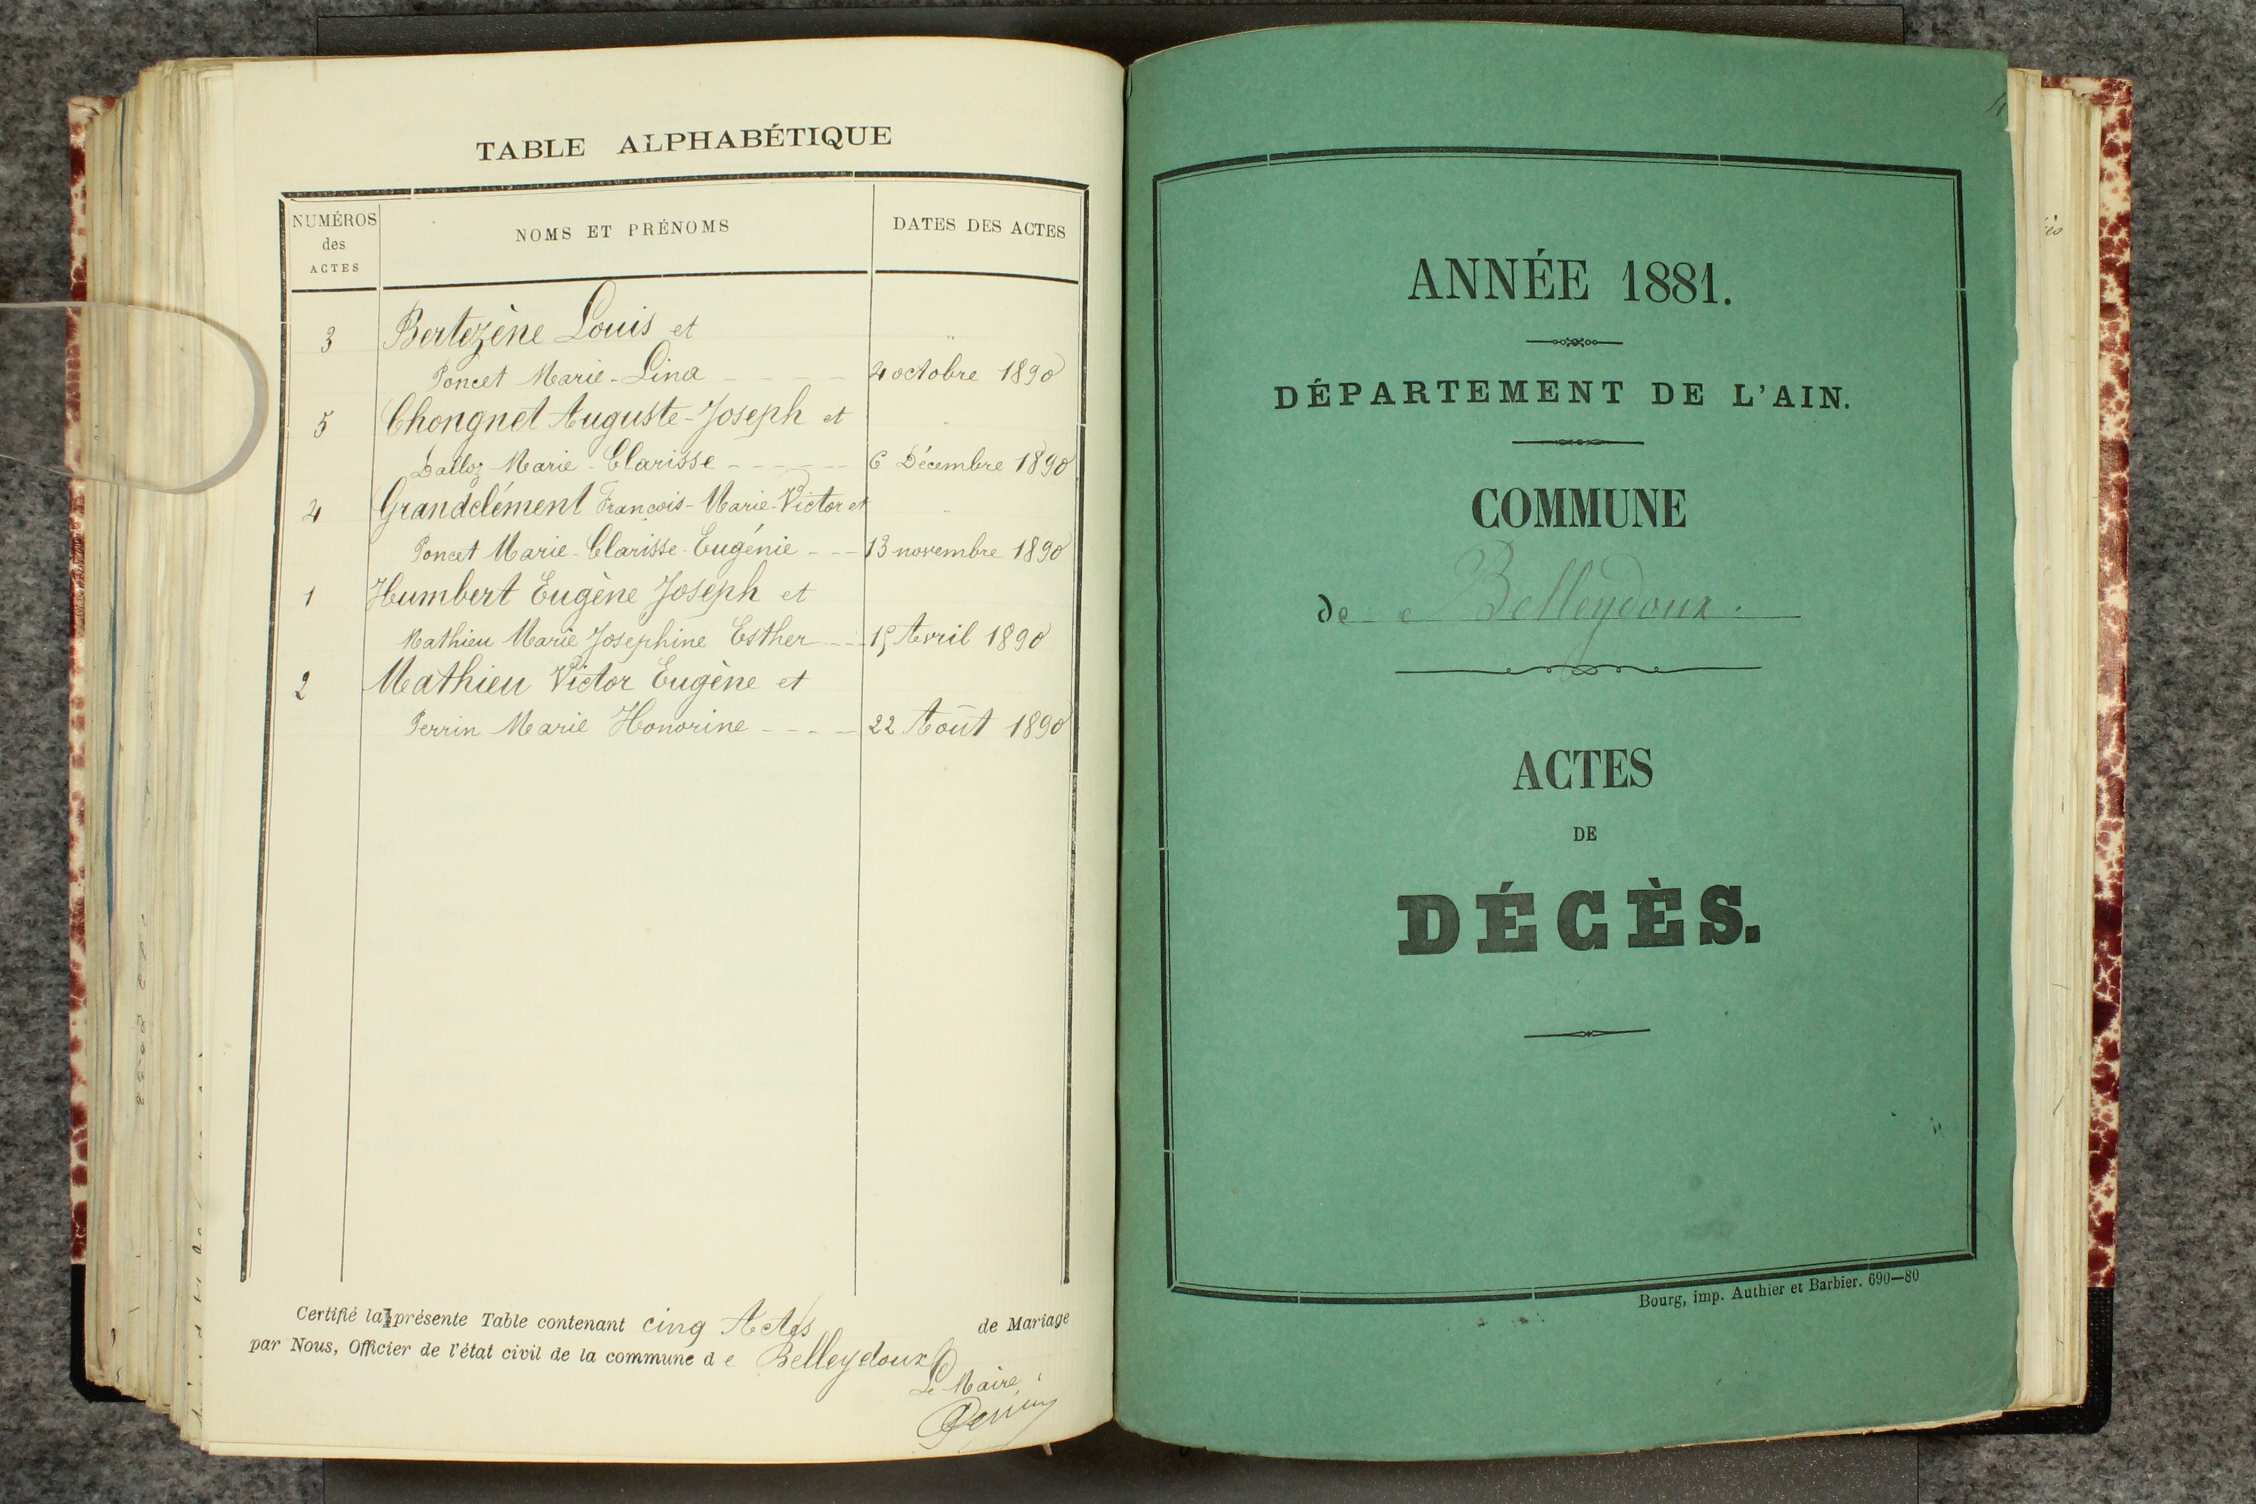 TABLE ALPHABÉTIQUE
NUMÉROS
des
ACTES
NOMS ET PRÉNOMS
DATES DES ACTES
3 Bertezène Louis et
Poncet Marie-Lina 4 octobre 1890
5 Chongnet Auguste-Joseph et
Dalloz Marie-Clarisse 6 Décembre 1890
4 Grandclément François-Marie-Victor et
Poncet Marie-Clarisse-Eugénie 13 novembre 1890
1 Humbert Eugène Joseph et
Mathieu Marie Josephine Esther Avril 1890
2 Mathieu Victor Eugène et
Perrin Marie Honorine 22 Août 1890
Certifié la présente Table contenant cinq Actes de Mariage
par Nous, Officier de l'état civil de la commune de Belleydoux
Le Maire
Perrin
ANNÉE 1881.
DÉPARTEMENT DE L'AIN.
COMMUNE
de Belleydoux.
ACTES
DE
DÉCÈS.
Bourg, imp. Authier et Barbier. 690—80